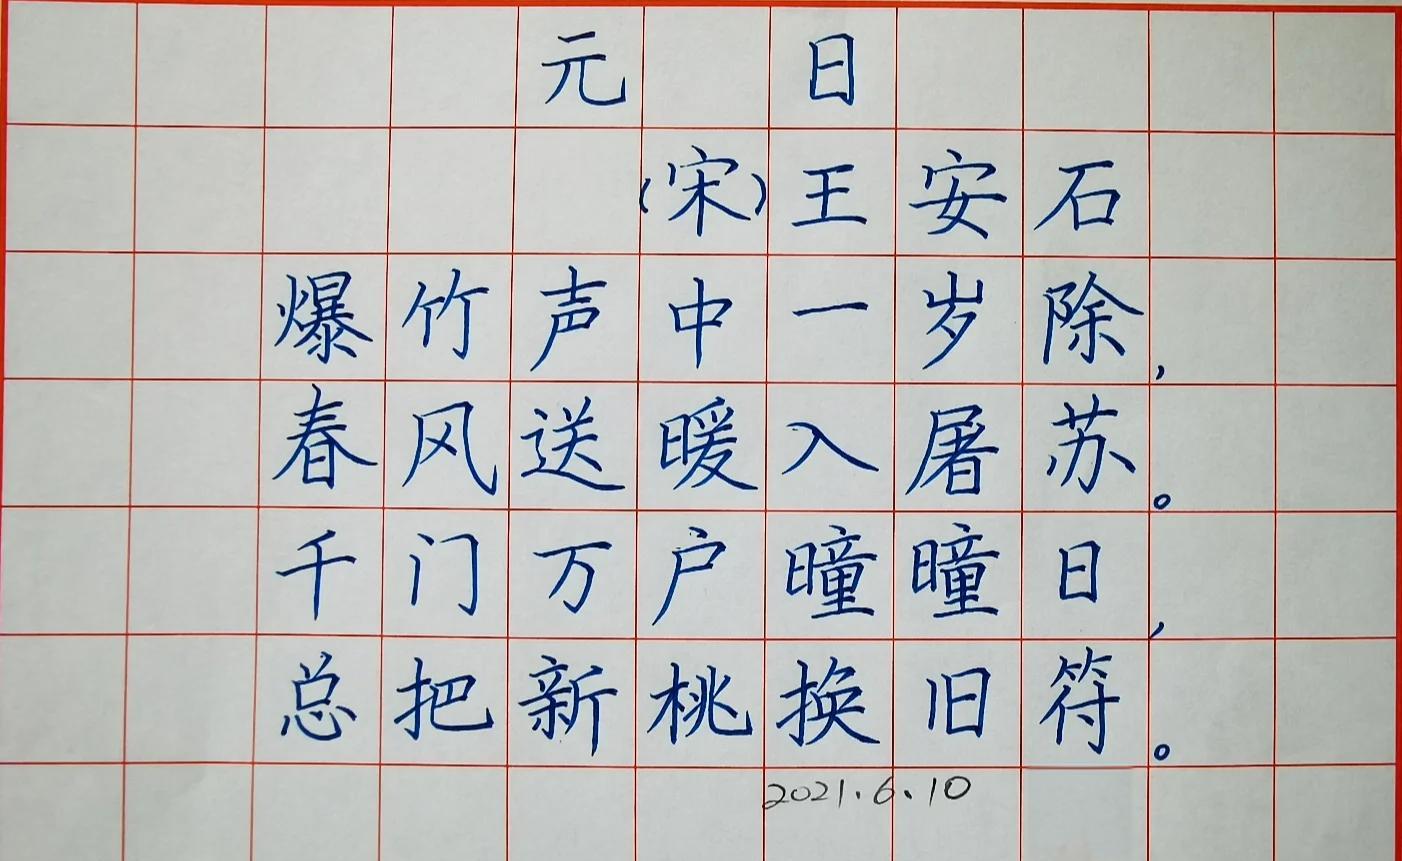 元日
(宋)王安石
爆竹声中一岁除,
春风送暖入屠苏。
千门万户曈曈日,
总把新桃换旧符。
2021.6.10